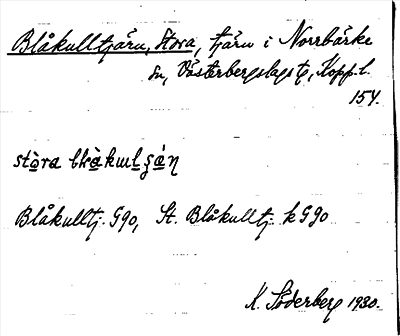 Blåkulltjärn, Stora, tjärn i Norrbärke
sn, Västerbergslags t, Kopp. l.
154.
stòra blɑ̀kuɩlʂǽn
Blåkulltj. G90, St. Blåkulltj. k G90
K. Söderberg 1930.